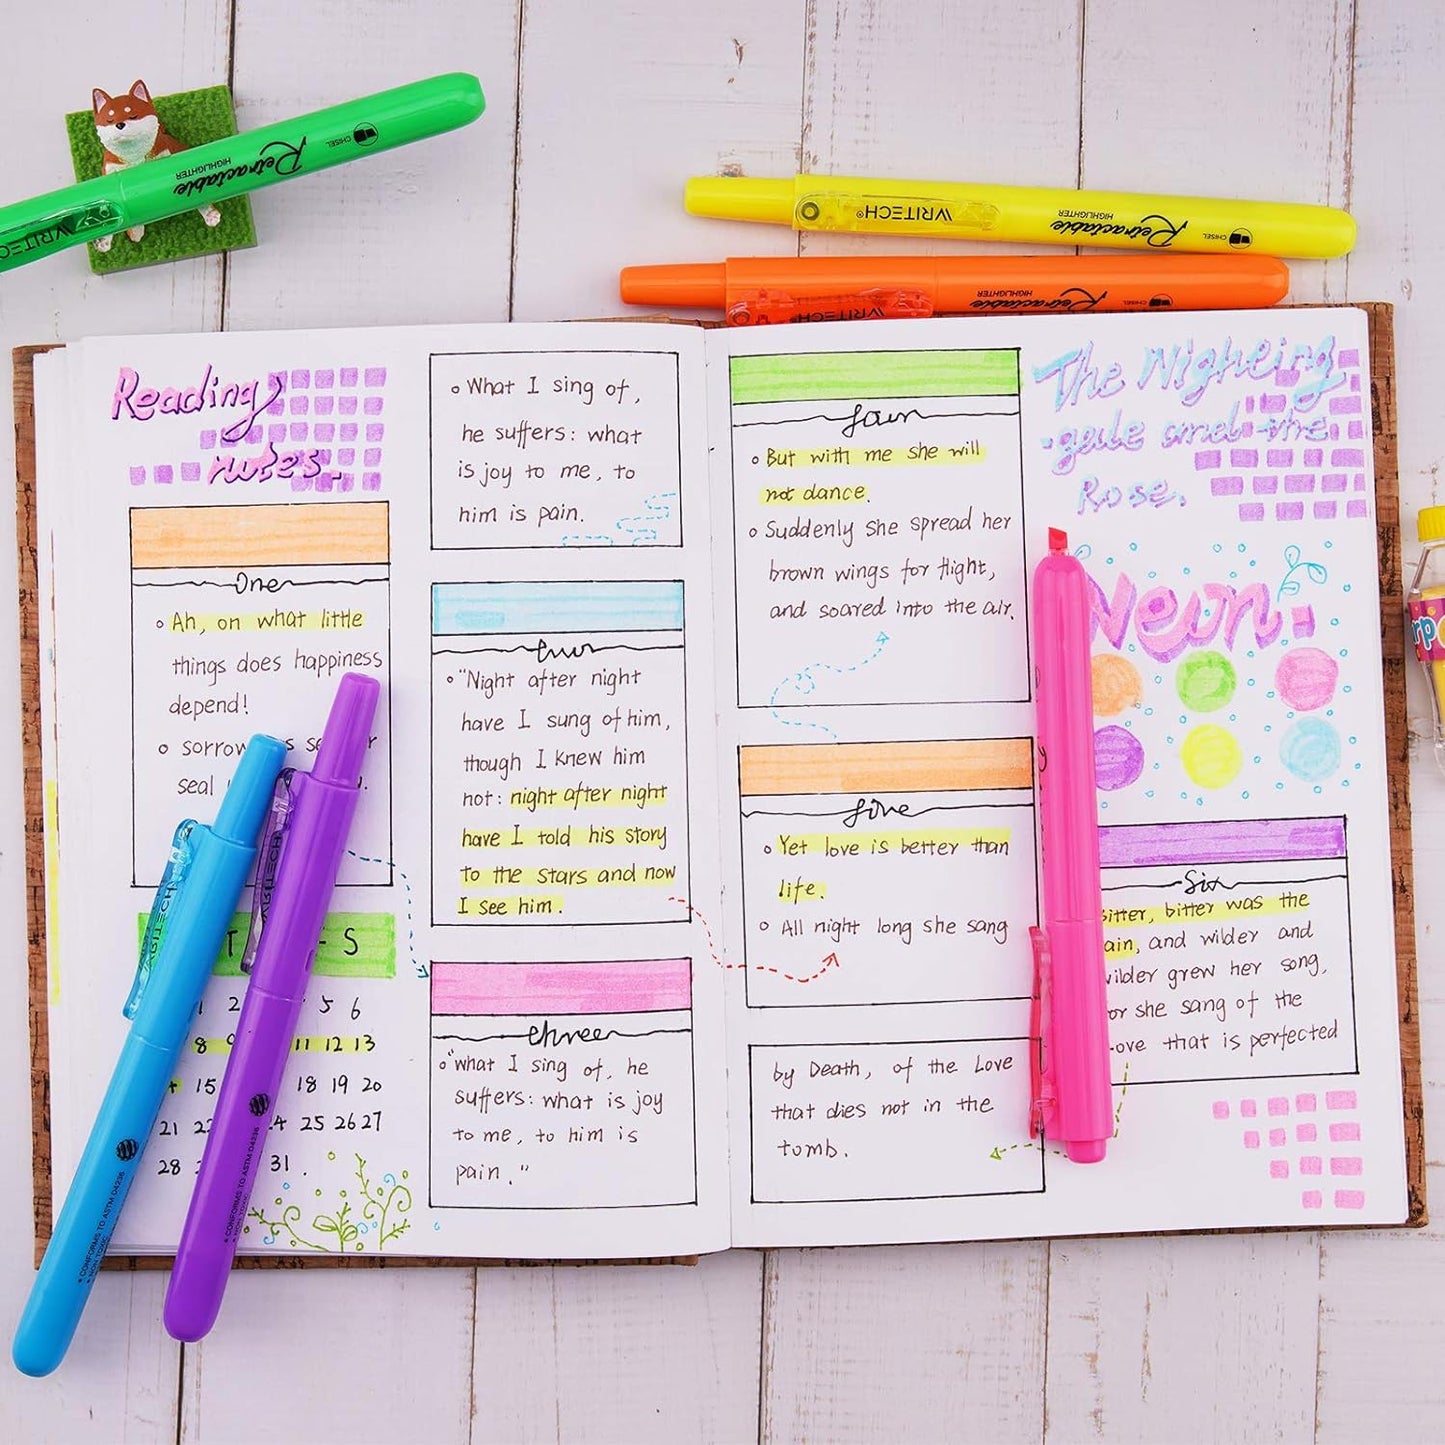 Reading
notes.
One
Ah, on what little
things does happiness
depend!
sorrow
seal
T
-S
1 2 5 6
8 9 11 12 13
15 18 19 20
21 24 25 26 27
28 31.
What I sing of,
he suffers: what
is joy to me, to
him is pain.
"Night after night
have I sung of him,
though I knew him
not: night after night
have I told his story
to the stars and now
I see him.
three
"what I sing of, he
suffers: what is joy
to me, to him is
pain."
But with me she will
not dance.
Suddenly she spread her
brown wings for flight,
and soared into the air.
five
Yet love is better than
life.
All night long she sang
by Death, of the Love
that dies not in the
tomb.
The Nighting
-gale and the
Rose.
Neon.
Six
bitter, bitter was the
and wilder and
wilder grew her song,
for she sang of the
Love that is perfected
WRITECH
Retractable
HIGHLIGHTER
CHISEL
WRITECH®
Retractable
HIGHLIGHTER
CHISEL
WRITECH®
Retractable
HIGHLIGHTER
CHISEL
WRITECH
CONFORMS TO ASTM D4236
NON TOXIC
WRITECH
CONFORMS TO ASTM D4236
NON TOXIC